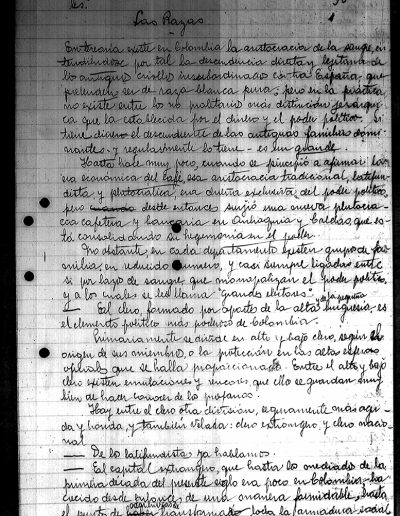 les.
Las Razas
En teoría existe en Colombia la aristocracia de la sangre, en
tendiéndose por tal la descendencia directa y legítima de
los antiguos criollos insubordinados contra España, que
pretenden ser de raza blanca pura; pero en la práctica
no existe entre los no proletarios más distinción jerárqui
ca que la establecida por el dinero y el poder político. Si
tiene dinero el descendiente de las antiguas familias domi
nantes - y regularmente lo tiene - es un grande.
Hasta hace muy poco, cuando se principió a afirmar la
era económica del café, esa aristocracia tradicional, latifun
dista y plutocrática, era dueña exclusiva del poder político,
pero cuando desde entonces surgió una nueva plutocra
cia cafetera y bancaria en Antioquia y Caldas que es
tá consolidando su hegemonía en el poder.
No obstante, en cada departamento existen grupos de fa
milias, en reducido número, y casi siempre ligadas entre
sí por lazos de sangre, que monopolizan el poder político,
y a los cuales se les llama "grandes electores".
— El clero, formado por aportes de la alta y de la pequeña burguesía, es
el elemento político más poderoso de Colombia.
Primariamente se divide en alto y bajo clero, según el
origen de sus miembros, o la protección en las altas esferas
oficiales que se halla proporcionado. Entre el alto y bajo
clero existen emulaciones y rencores, que ellos se guardan muy
bien de hacer conocer de los profanos.
Hay entre el clero otra división, seguramente más agu
da y honda, y también velada: clero extranjero, y clero nacio
nal
— De los latifundistas ya hablamos.
— El capital extranjero, que hasta los mediados de la
primera década del presente siglo era poco en Colombia, ha
crecido desde entonces de una manera formidable, hasta
el punto de transformado toda la armadura social